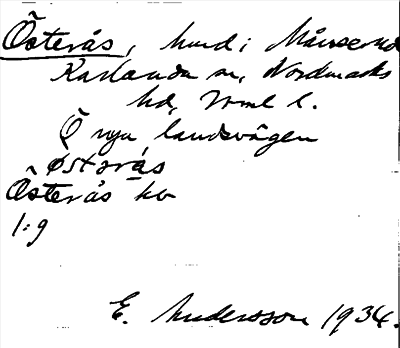 Österås, hmd i Månserud
Karlanda sn, Nordmarks
hd, Vrml l.
Ö nya landsvägen
østərás
Österås kv
1:9
E. Andersson 1934.